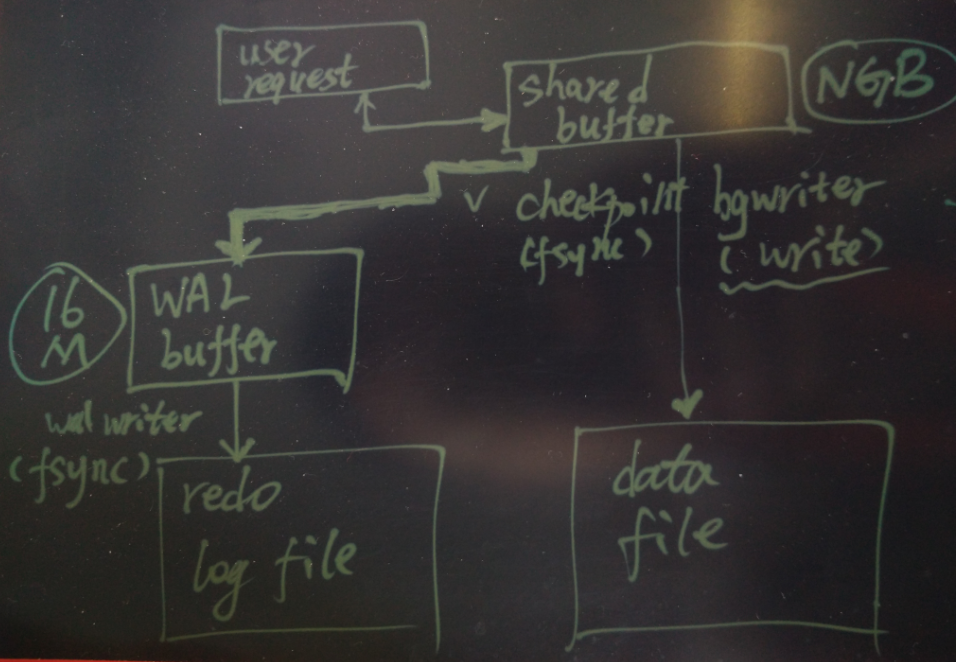 user
request
shared
buffer
NGB
v checkpoint
(fsync)
bgwriter
(write)
16
M
WAL
buffer
wal writer
(fsync)
redo
log file
data
file